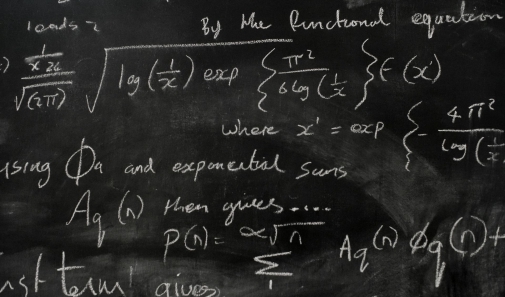 leads
By the functional equation
x^(1/24) / √(2π) √ log(1/x) exp { π² / 6 log(1/x) } f(x')
where x' = exp { - 4π² / log(1/x)
using Φa and exponential sums
Aq(n) then gives....
P(n) = ∝√n Σ 1 Aq(n) φq(n) +
term' gives